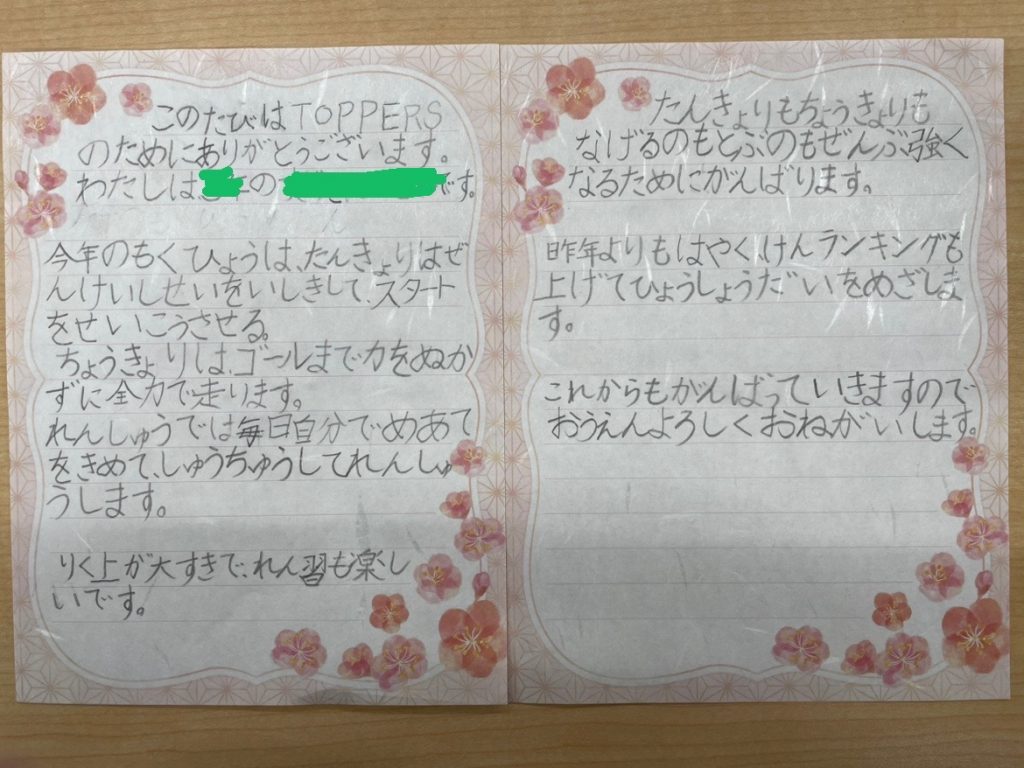 このたびはTOPPERS
のためにありがとうございます。
わたしは の です。
今年のもくひょうは、たんきょりはぜ
んけいしせいをいしきして、スタート
をせいこうさせる。
ちょうきょりは、ゴールまで力をぬか
ずに全力で走ります。
れんしゅうでは毎日自分でめあて
をきめて、しゅうちゅうしてれんしゅ
うします。
りく上が大すきで、れん習も楽し
いです。
たんきょりもちょうきょりも
なげるのもとぶのもぜんぶ強く
なるためにがんばります。
昨年よりもはやく、けんランキングも
上げてひょうしょうだいをめざしま
す。
これからもがんばっていきますので
おうえんよろしくおねがいします。